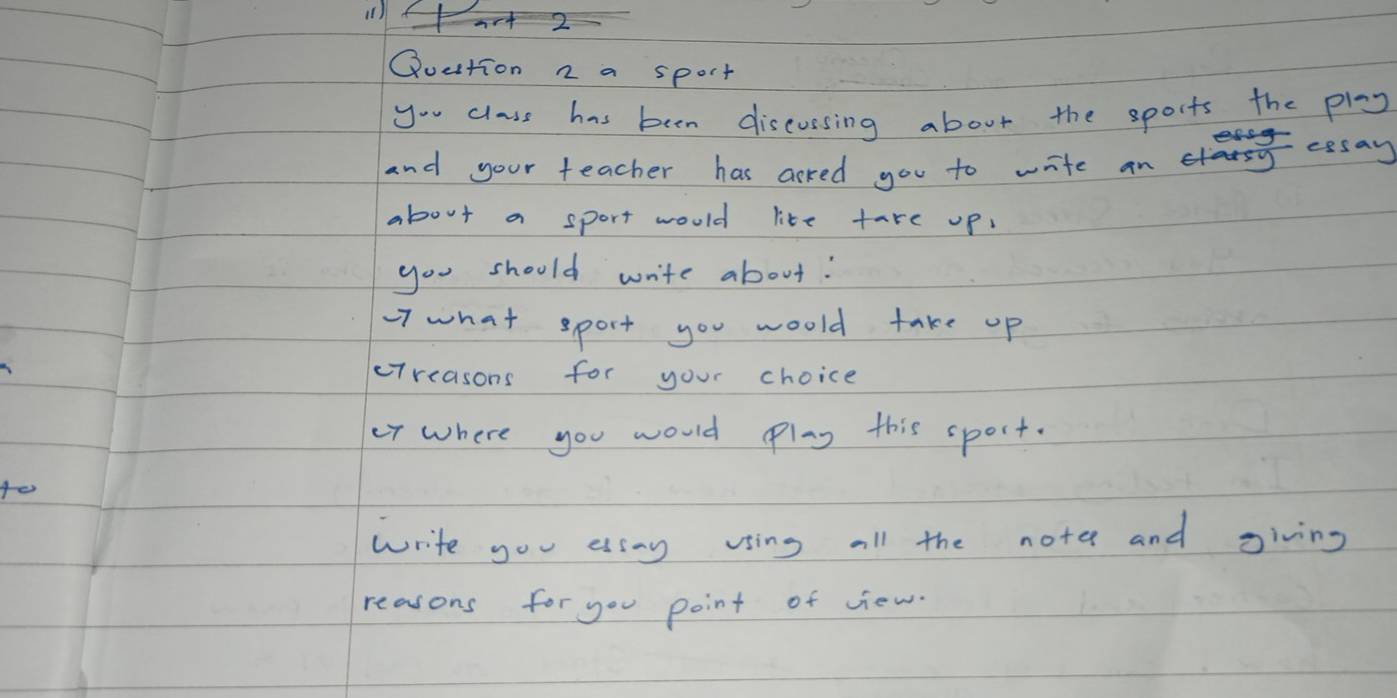 11) Part 2
Question 2 a sport
you class has been discussing about the sports the play
and your teacher has asked you to write an essay
about a sport would like take up.
you should write about:
→ what sport you would take up
→ reasons for your choice
→ where you would play this sport.
to
write you essay using all the notes and giving
reasons for you point of view.